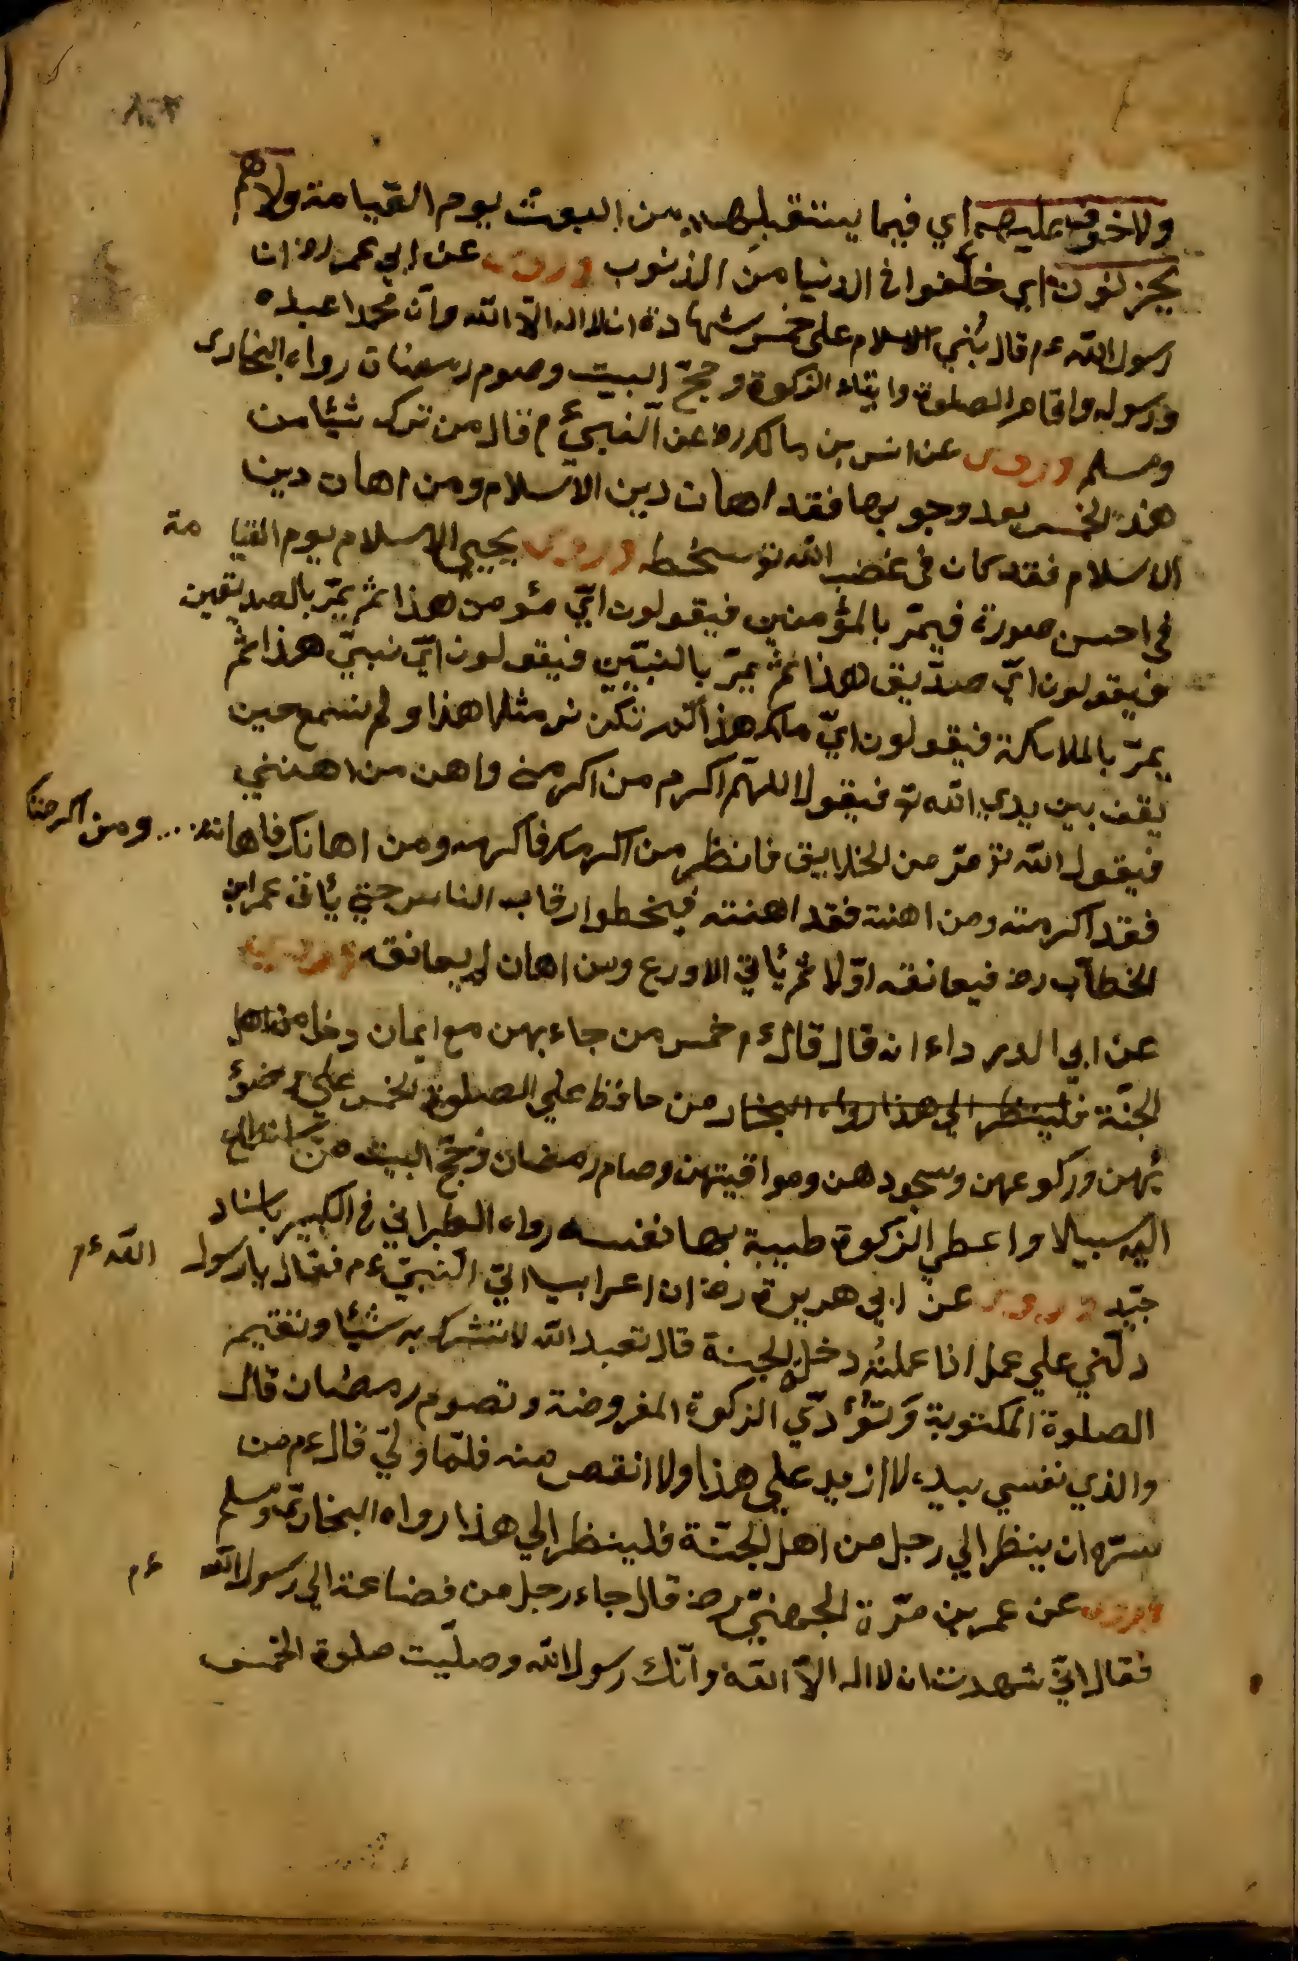 ولا خوف عليهم اي فيما يستقبلهم من البعث يوم القيامة ولا هم
يحزنون اي خلّفوا في الدنيا من الذنوب وروى عن ابي عمر رضه ان
رسول الله عم قال بُني الاسلام على خمس شهادة ان لا اله الّا الله وانّ محمدا عبده
ورسوله واقام الصلوة وايتاء الزكوة وحجّ البيت وصوم رمضان رواه البخارى
ومسلم وروى عن انس بن مالك رضه عن النّبيّ عم قال من ترك شيئا من
هذه الخمس بعد وجوبها فقد اهان دين الاسلام ومن اهان دين
الاسلام فقد كان في غضب الله تع وسخطه وروى يجيئ الاسلام يوم القيا مة
في احسن صورة فيمرّ بالمؤمنين فيقولون ايّ مئومن هذا ثم يمرّ بالصديقين
فيقولون ايّ صدّيق هذا ثم يمرّ بالنبيّين فيقولون ايّ نبيّ هذا ثم
يمرّ بالملائكة فيقولون ايّ ملك هذا لم نر مثل هذا ولم نسمع حين
يقف بين يدي الله تع فيقول اللهمّ اكرم من اكرمني واهن من اهنني
فيقول الله تع مرّ من الخلايق فانظر من اكرمك فاكرمه ومن اهانك فاهانه ... ومن اكرمتك
فقد اكرمته ومن اهنته فقد اهنته فيخطوا رقاب الناس حتي يأتي عمر ابن
الخطّاب رضه فيعانقه اوّلا ثم يأتي الاورع ومن اهان لم يعانقه وروى
عن ابي الدرداء انه قال قال عم خمس من جاء بهن مع ايمان دخل من اهل
الجنّة فلينظر الي هذا رواه البخار من حافظ علي الصلوة الخمس علي وضؤ
ئهن وركوعهن وسجودهن ومواقيتهن وصام رمضان وحجّ البيت من استطاع
اليه سبيلا واعطي الزكوة طيبة بها نفسه رواه الطبراني في الكبير باسناد
جيّد وروى عن ابي هريرة رضه ان اعرابيا اتي النّبيّ عم فقال يا رسول الله عم
دلّني علي عمل اذا عملتُه دخلت الجنة قال تعبد الله لا تشرك به شيئا وتقيم
الصلوة المكتوبة وتؤدّي الزكوة المفروضة وتصوم رمضان قال
والذي نفسي بيده لا ازيد علي هذا ولا انقص منه فلمّا ولّي قال عم من
سرّه ان ينظر الي رجل من اهل الجنّة فلينظر الي هذا رواه البخاريّ ومسلم
وروى عن عمر بن مرّة الجهنيّ رضه قال جاء رجل من قضاعة الي رسول الله عم
فقال انّي شهدت ان لا اله الّا الله وانّك رسول الله وصلّيت صلوة الخمس